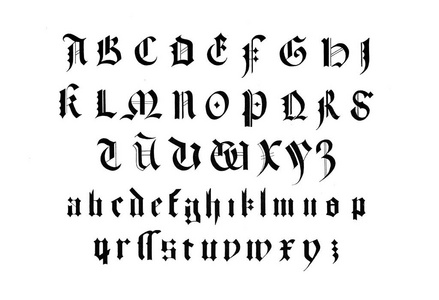 A B C D E F G H I
K L M N O P Q R S
T U V W X Y Z
a b c d e f g h i k l m n o p
q r ſſ s t u v w x y z